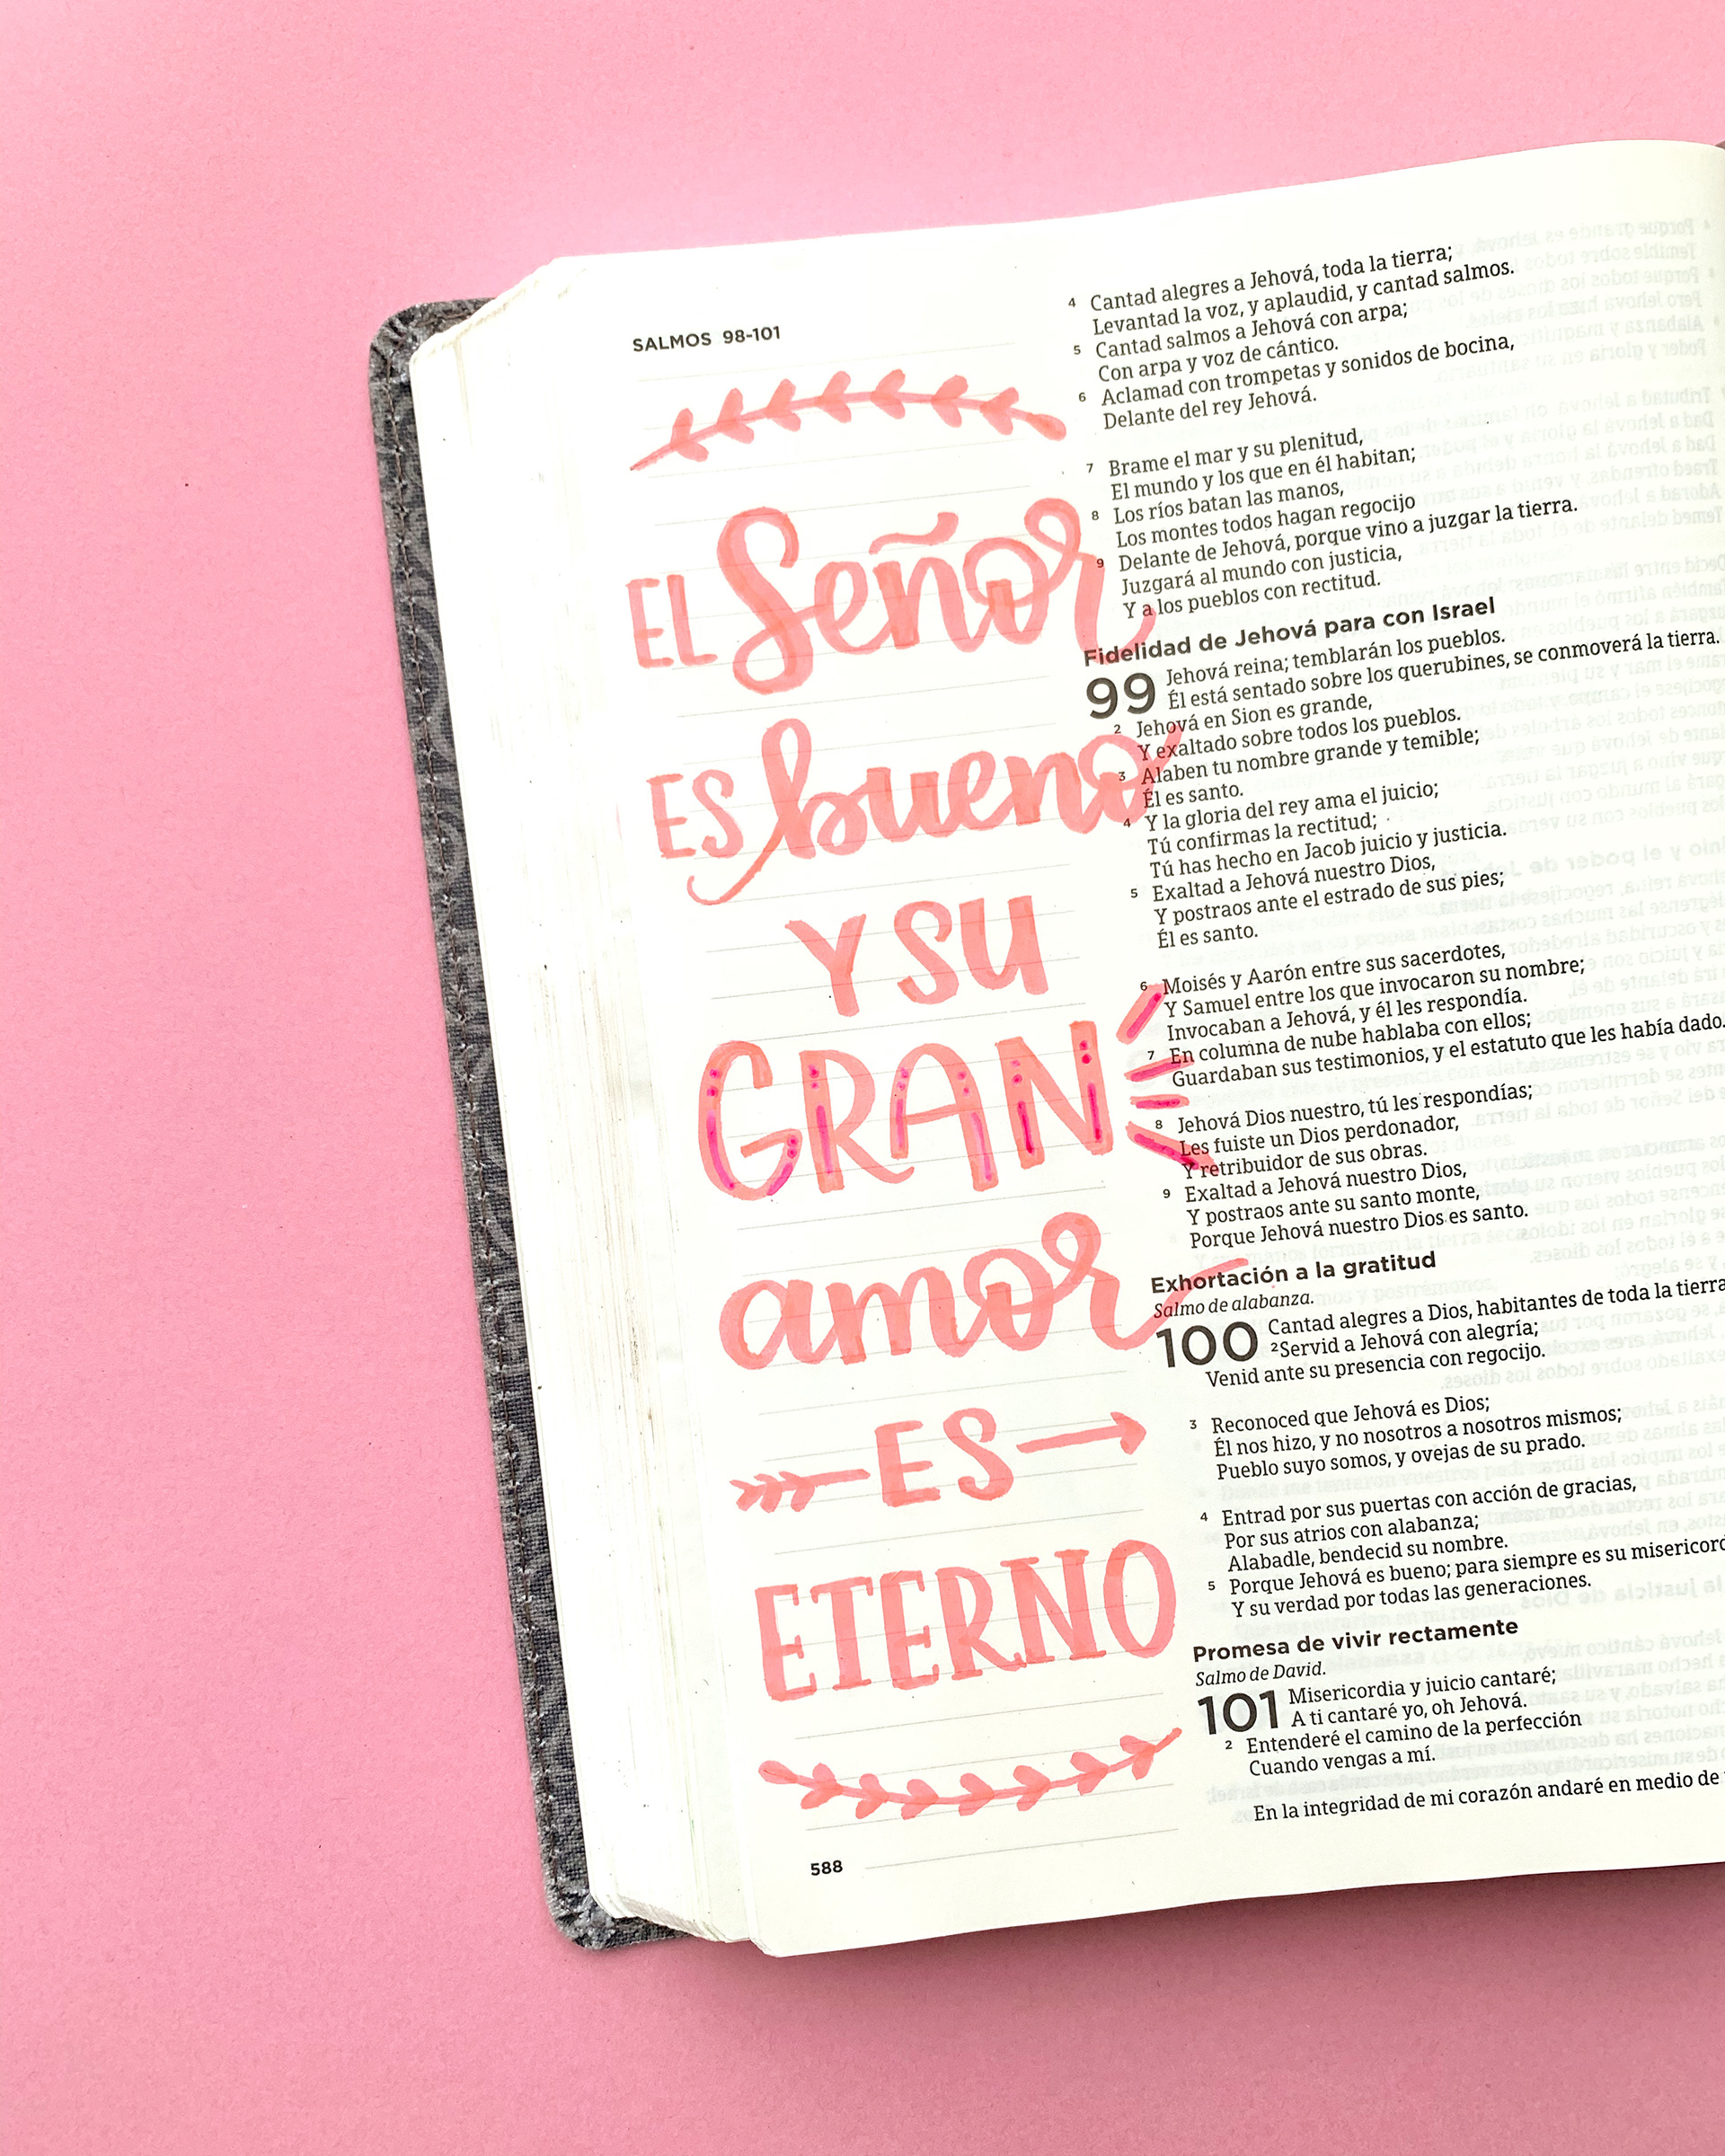 SALMOS 98-101
EL Señor
ES bueno
Y SU
GRAN
amor
ES
ETERNO
588
4 Cantad alegres a Jehová, toda la tierra;
Levantad la voz, y aplaudid, y cantad salmos.
5 Cantad salmos a Jehová con arpa;
Con arpa y voz de cántico.
6 Aclamad con trompetas y sonidos de bocina,
Delante del rey Jehová.
7 Brame el mar y su plenitud,
El mundo y los que en él habitan;
8 Los ríos batan las manos,
Los montes todos hagan regocijo
9 Delante de Jehová, porque vino a juzgar la tierra.
Juzgará al mundo con justicia,
Y a los pueblos con rectitud.
Fidelidad de Jehová para con Israel
99 Jehová reina; temblarán los pueblos.
Él está sentado sobre los querubines, se conmoverá la tierra.
2 Jehová en Sion es grande,
Y exaltado sobre todos los pueblos.
3 Alaben tu nombre grande y temible;
Él es santo.
4 Y la gloria del rey ama el juicio;
Tú confirmas la rectitud;
Tú has hecho en Jacob juicio y justicia.
5 Exaltad a Jehová nuestro Dios,
Y postraos ante el estrado de sus pies;
Él es santo.
6 Moisés y Aarón entre sus sacerdotes,
Y Samuel entre los que invocaron su nombre;
Invocaban a Jehová, y él les respondía.
7 En columna de nube hablaba con ellos;
Guardaban sus testimonios, y el estatuto que les había dado.
8 Jehová Dios nuestro, tú les respondías;
Les fuiste un Dios perdonador,
Y retribuidor de sus obras.
9 Exaltad a Jehová nuestro Dios,
Y postraos ante su santo monte,
Porque Jehová nuestro Dios es santo.
Exhortación a la gratitud
Salmo de alabanza.
100 Cantad alegres a Dios, habitantes de toda la tierra
2 Servid a Jehová con alegría;
Venid ante su presencia con regocijo.
3 Reconoced que Jehová es Dios;
Él nos hizo, y no nosotros a nosotros mismos;
Pueblo suyo somos, y ovejas de su prado.
4 Entrad por sus puertas con acción de gracias,
Por sus atrios con alabanza;
Alabadle, bendecid su nombre.
5 Porque Jehová es bueno; para siempre es su misericord
Y su verdad por todas las generaciones.
Promesa de vivir rectamente
Salmo de David.
101 Misericordia y juicio cantaré;
A ti cantaré yo, oh Jehová.
2 Entenderé el camino de la perfección
Cuando vengas a mí.
En la integridad de mi corazón andaré en medio de